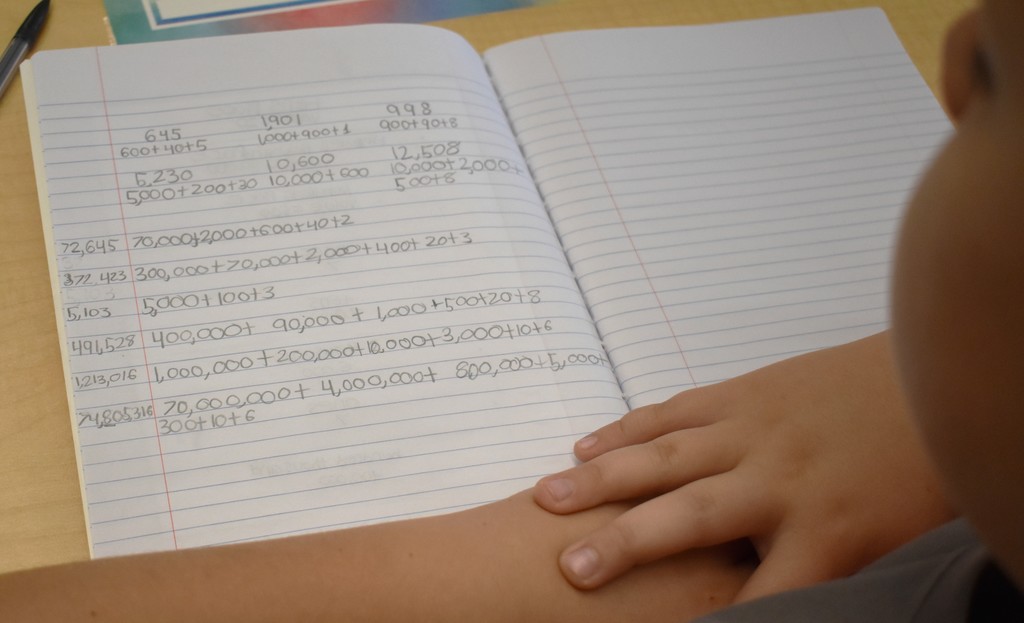 645 1,901 998
600+40+5 1,000+900+1 900+90+8
5,230 10,600 12,508
5,000+200+30 10,000+600 10,000+2,000+
500+8
72,645 70,000+2,000+600+40+2
372,423 300,000+70,000+2,000+400+20+3
5,103 5,000+100+3
491,528 400,000+ 90,000+ 1,000+500+20+8
1,213,016 1,000,000+200,000+10,000+3,000+10+6
74,805,316 70,000,000+ 4,000,000+ 800,000+5,000+
300+10+6